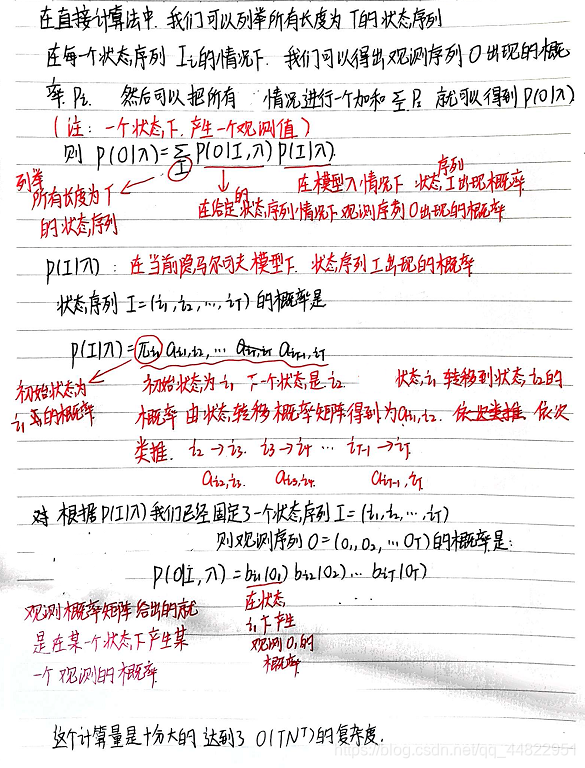 在直接计算法中. 我们可以列举所有长度为T的状态序列
在每一个状态序列 Ii的情况下. 我们可以得出观测序列O出现的概
率Pi. 然后可以把所有 情况进行一个加和 ΣPi 就可以得到P(O|λ)
(注: 一个状态下.产生一个观测值)
则 P(O|λ)=Σ_I P(O|I,λ)P(I|λ).
列举
所有长度为T
的状态序列
在模型λ情况下 状态序列I出现概率
在给定的状态序列情况下观测序列O出现的概率
P(I|λ): 在当前隐马尔可夫模型下. 状态序列I出现的概率
状态序列 I=(i1,i2,...,iT) 的概率是
P(I|λ)=πi1 ai1,i2,... aiT-1,iT
初始状态为
i1的概率
初始状态为i1 下一个状态是i2 状态i1转移到状态i2的
概率 由状态转移概率矩阵得到为ai1,i2. 依次
类推. i2→i3. i3→i4 ... iT-1→iT
ai2,i3. ai3,i4. aiT-1,iT
对 根据P(I|λ)我们已经固定了一个状态序列 I=(i1,i2,...,iT)
则观测序列 O=(O1,O2,...OT)的概率是:
P(O|I,λ)=bi1(O1)bi2(O2)... biT(OT)
观测概率矩阵给出的就
是在某一个状态下产生某
一个观测的概率
在状态
i1下产生
观测O1的
概率
. . .
这个计算量是十分大的 达到了 O(TN^T)的复杂度.
https://blog.csdn.net/qq_44822951